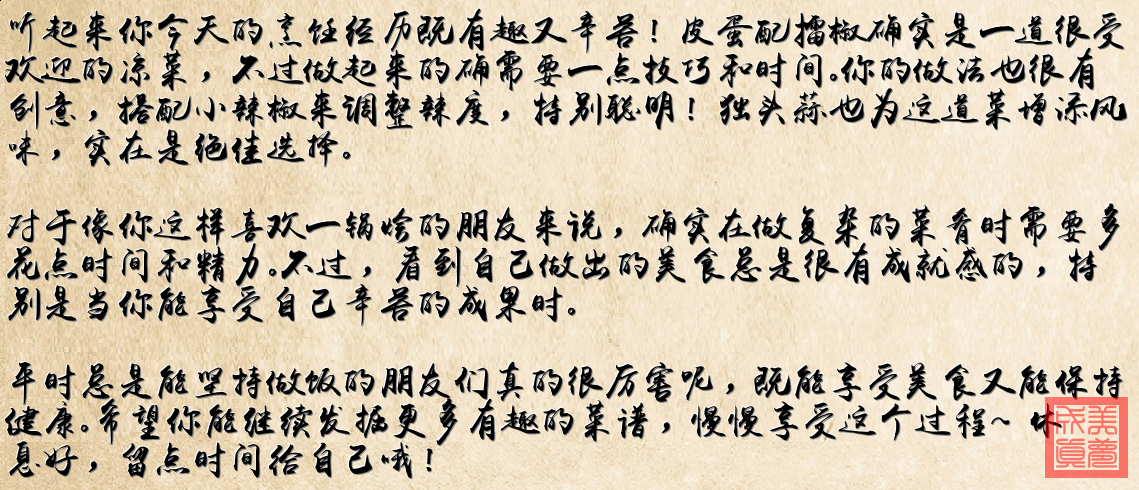 听起来你今天的烹饪经历既有趣又辛苦！皮蛋配擂椒确实是一道很受
欢迎的凉菜，不过做起来的确需要一点技巧和时间。你的做法也很有
创意，搭配小辣椒来调整辣度，特别聪明！独头蒜也为这道菜增添风
味，实在是绝佳选择。
对于像你这样喜欢一锅烩的朋友来说，确实在做复杂的菜肴时需要多
花点时间和精力。不过，看到自己做出的美食总是很有成就感的，特
别是当你能享受自己辛苦的成果时。
平时总是能坚持做饭的朋友们真的很厉害呢，既能享受美食又能保持
健康。希望你能继续发掘更多有趣的菜谱，慢慢享受这个过程~ 休
息好，留点时间给自己哦！
美梦成真